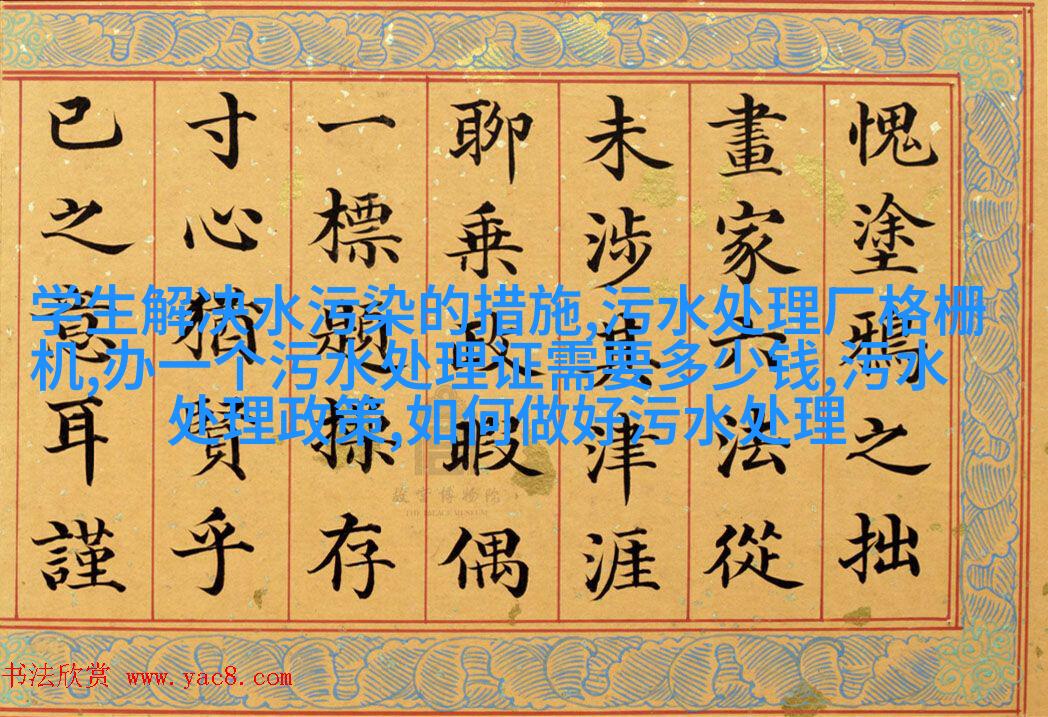 愧塗鴉之拙
畫家六法從
未涉其津涯
聊乘政暇偶
一標題操存
寸心猶賢乎
已之意耳謹
学生解决水污染的措施,污水处理厂格栅
机,办一个污水处理证需要多少钱,污水
处理政策,如何做好污水处理
故宫博物院
THE PALACE MUSEUM
书法欣赏 www.yac8.com